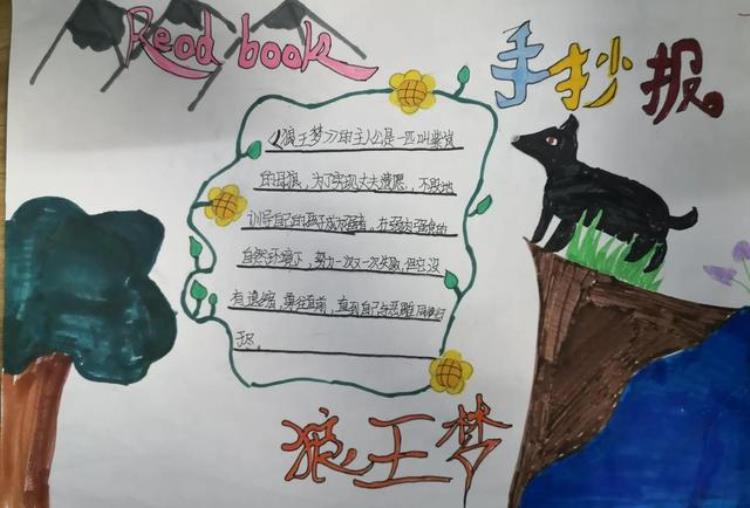 Read book
手抄报
《狼王梦》的主人公是一匹叫紫岚
的母狼，为了实现丈夫遗愿，不断地
训导自己的孩子成为强者，在弱肉强食的
自然环境下，努力一次又一次失败，但它没
有退缩，勇往直前，直到自己与恶雕同归于
尽。
狼王梦